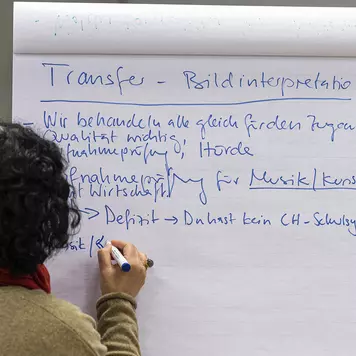 Transfer – Bildinterpretatio
– Wir behandeln alle gleich für den Zugan
Qualität wichtig,
fnahmeprüfung, Hürde
fnahmeprüfung für Musik/Kuns
t Wirtschaft
→ Defizit → Du hast kein CH-Schulsy
sik/K